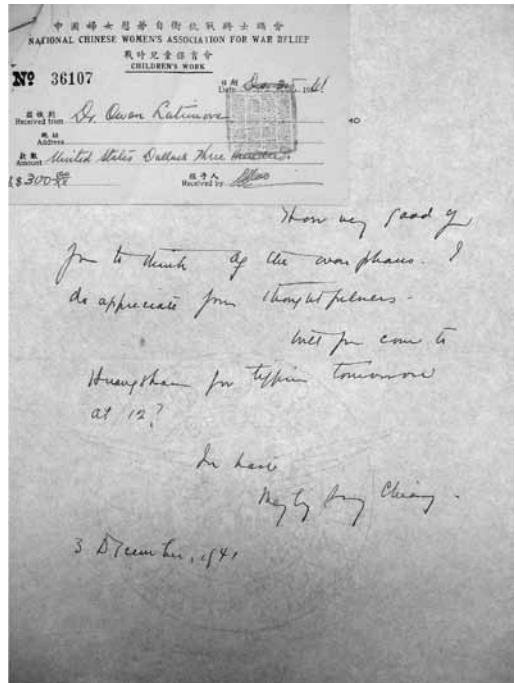 中國婦女慰勞自衛抗戰將士總會
NATIONAL CHINESE WOMEN'S ASSOCIATION FOR WAR RELIEF
戰時兒童保育會
CHILDREN'S WORK
No 36107
日期
Date Dec 2nd 1941
茲收到
Received from Dr. Owen Lattimore
地址
Address
款數
Amount United States Dollars Three Hundred
$300 00/xx
經手人
Received by
40
How very good of
you to think of the war phans. I
do appreciate your thoughtfulness.
Will you come to
Huangshan for tiffin tomorrow
at 12?
In haste
Mayling Soong Chiang.
3 December, 1941